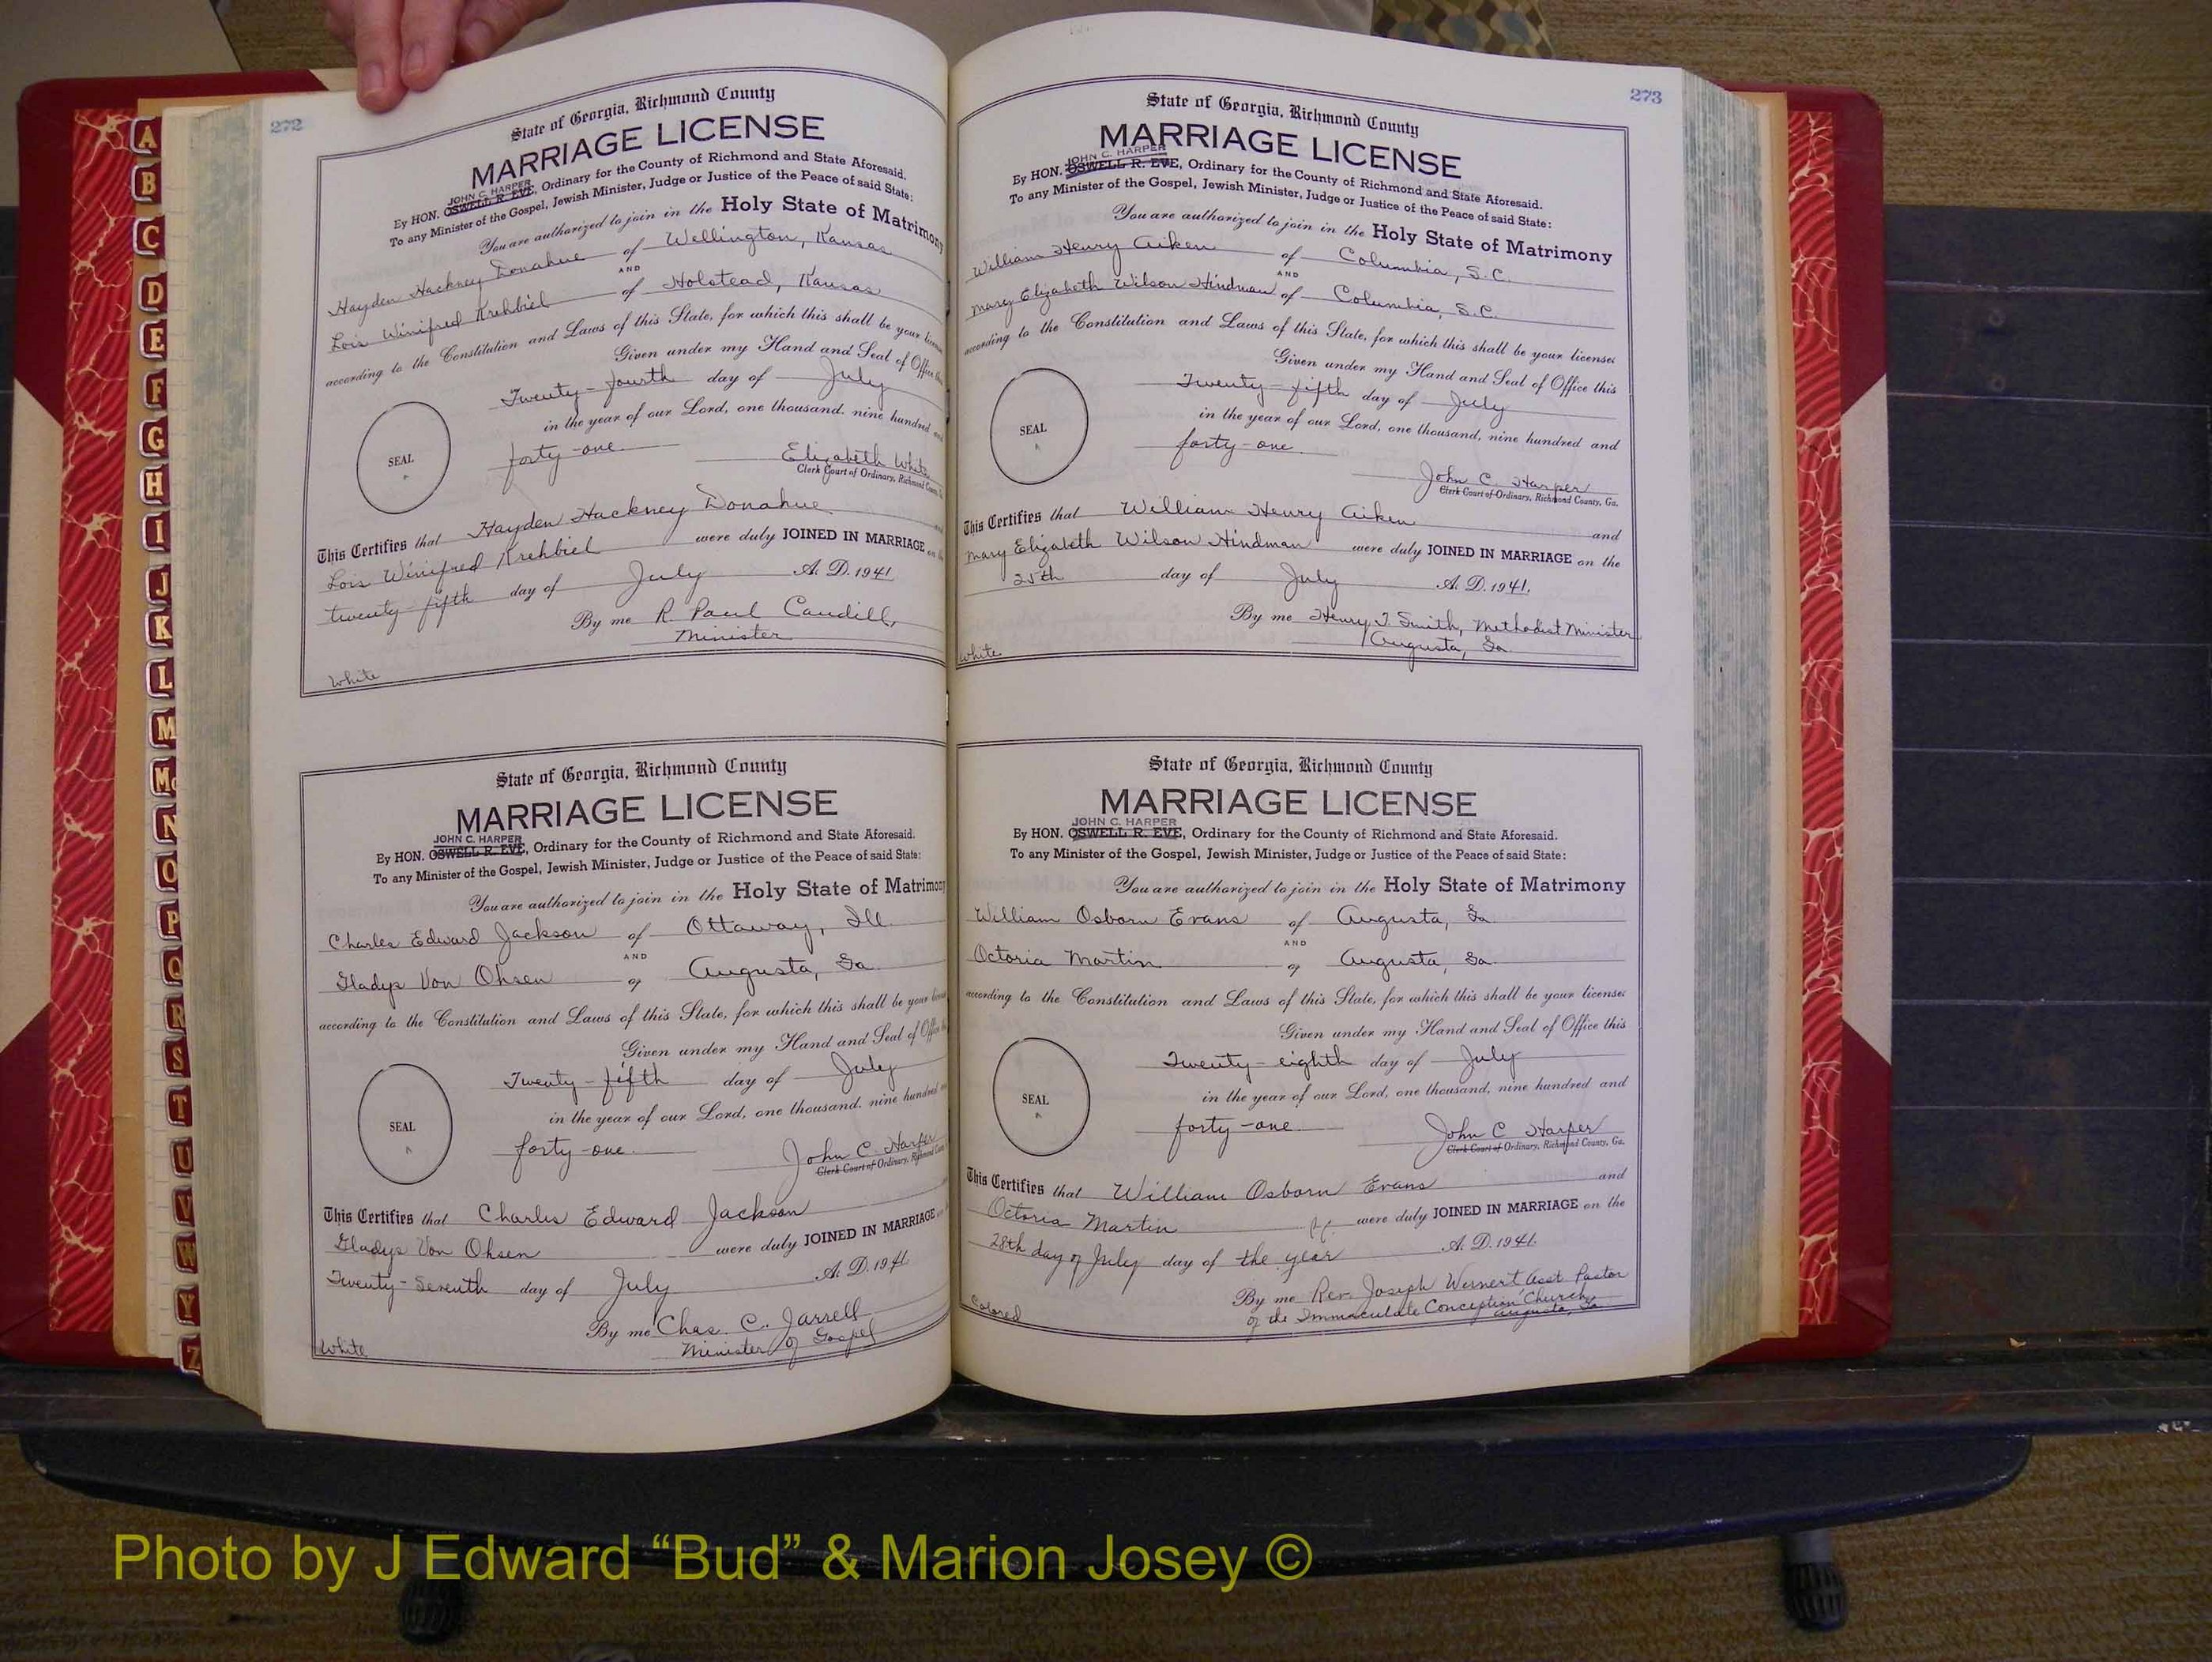 272
State of Georgia, Richmond County
MARRIAGE LICENSE
JOHN C. HARPER
By HON. OSWELL R. EVE, Ordinary for the County of Richmond and State Aforesaid.
To any Minister of the Gospel, Jewish Minister, Judge or Justice of the Peace of said State:
You are authorized to join in the Holy State of Matrimony
Hayden Hackney Donahue of Wellington, Kansas
AND
Lois Winifred Krehbiel of Holstead, Kansas
according to the Constitution and Laws of this State, for which this shall be your license
Given under my Hand and Seal of Office this
Twenty-fourth day of July
in the year of our Lord, one thousand, nine hundred and
SEAL
forty-one.
Elizabeth White
Clerk Court of Ordinary, Richmond County, Ga.
This Certifies that Hayden Hackney Donahue
Lois Winifred Krehbiel were duly JOINED IN MARRIAGE on the
twenty-fifth day of July A. D. 1941
By me R. Paul Caudill,
Minister
White
State of Georgia, Richmond County
MARRIAGE LICENSE
JOHN C. HARPER
By HON. OSWELL R. EVE, Ordinary for the County of Richmond and State Aforesaid.
To any Minister of the Gospel, Jewish Minister, Judge or Justice of the Peace of said State:
You are authorized to join in the Holy State of Matrimony
Charles Edward Jackson of Ottaway, Ill
AND
Gladys Von Ohsen of Augusta, Ga.
according to the Constitution and Laws of this State, for which this shall be your license
Given under my Hand and Seal of Office
Twenty-fifth day of July
in the year of our Lord, one thousand, nine hundred
SEAL
forty-one.
John C. Harper
Clerk Court of Ordinary, Richmond County
This Certifies that Charles Edward Jackson
Gladys Von Ohsen were duly JOINED IN MARRIAGE
Twenty-Seventh day of July A. D. 1941
By me Chas. C. Jarrell
Minister of Gospel
White
273
State of Georgia, Richmond County
MARRIAGE LICENSE
JOHN C. HARPER
By HON. OSWELL R. EVE, Ordinary for the County of Richmond and State Aforesaid.
To any Minister of the Gospel, Jewish Minister, Judge or Justice of the Peace of said State:
You are authorized to join in the Holy State of Matrimony
William Henry Aiken of Columbia, S.C.
AND
Mary Elizabeth Wilson Hindman of Columbia, S.C.
according to the Constitution and Laws of this State, for which this shall be your license:
Given under my Hand and Seal of Office this
Twenty-fifth day of July
in the year of our Lord, one thousand, nine hundred and
SEAL
forty-one.
John C. Harper
Clerk Court of Ordinary, Richmond County, Ga.
This Certifies that William Henry Aiken and
Mary Elizabeth Wilson Hindman were duly JOINED IN MARRIAGE on the
25th day of July A. D. 1941.
By me Henry T. Smith, Methodist Minister
Augusta, Ga.
White
State of Georgia, Richmond County
MARRIAGE LICENSE
JOHN C. HARPER
By HON. OSWELL R. EVE, Ordinary for the County of Richmond and State Aforesaid.
To any Minister of the Gospel, Jewish Minister, Judge or Justice of the Peace of said State:
You are authorized to join in the Holy State of Matrimony
William Osborn Evans of Augusta, Ga.
AND
Octoria Martin of Augusta, Ga.
according to the Constitution and Laws of this State, for which this shall be your license:
Given under my Hand and Seal of Office this
Twenty-eighth day of July
in the year of our Lord, one thousand, nine hundred and
SEAL
forty-one.
John C Harper
Clerk Court of Ordinary, Richmond County, Ga.
This Certifies that William Osborn Evans and
Octoria Martin were duly JOINED IN MARRIAGE on the
28th day of July day of the year A. D. 1941.
By me Rev. Joseph Wernert Asst Pastor
of the Immaculate Conception Church,
Augusta, Ga.
Colored
A
B
C
D
E
F
G
H
I
J
K
L
M
Mc
N
O
P
Q
R
S
T
U
V
W
Y
Z
Photo by J Edward “Bud” & Marion Josey ©